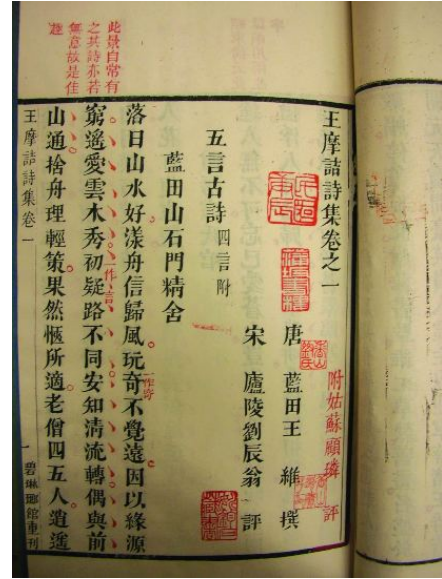 王摩詰詩集卷之一
附姑蘇顧璘評
唐藍田王維撰
宋廬陵劉辰翁評
五言古詩四言附
藍田山石門精舍
落日山水好漾舟信歸風玩奇不覺遠因以緣源
一作奇
窮遙愛雲木秀初疑路不同安知清流轉偶與前
一作言
山通捨舟理輕策果然愜所適老僧四五人逍遙
此景自常有
之其詩亦若
無意故是佳
王摩詰詩集卷一
一
碧琳瑯館重刊